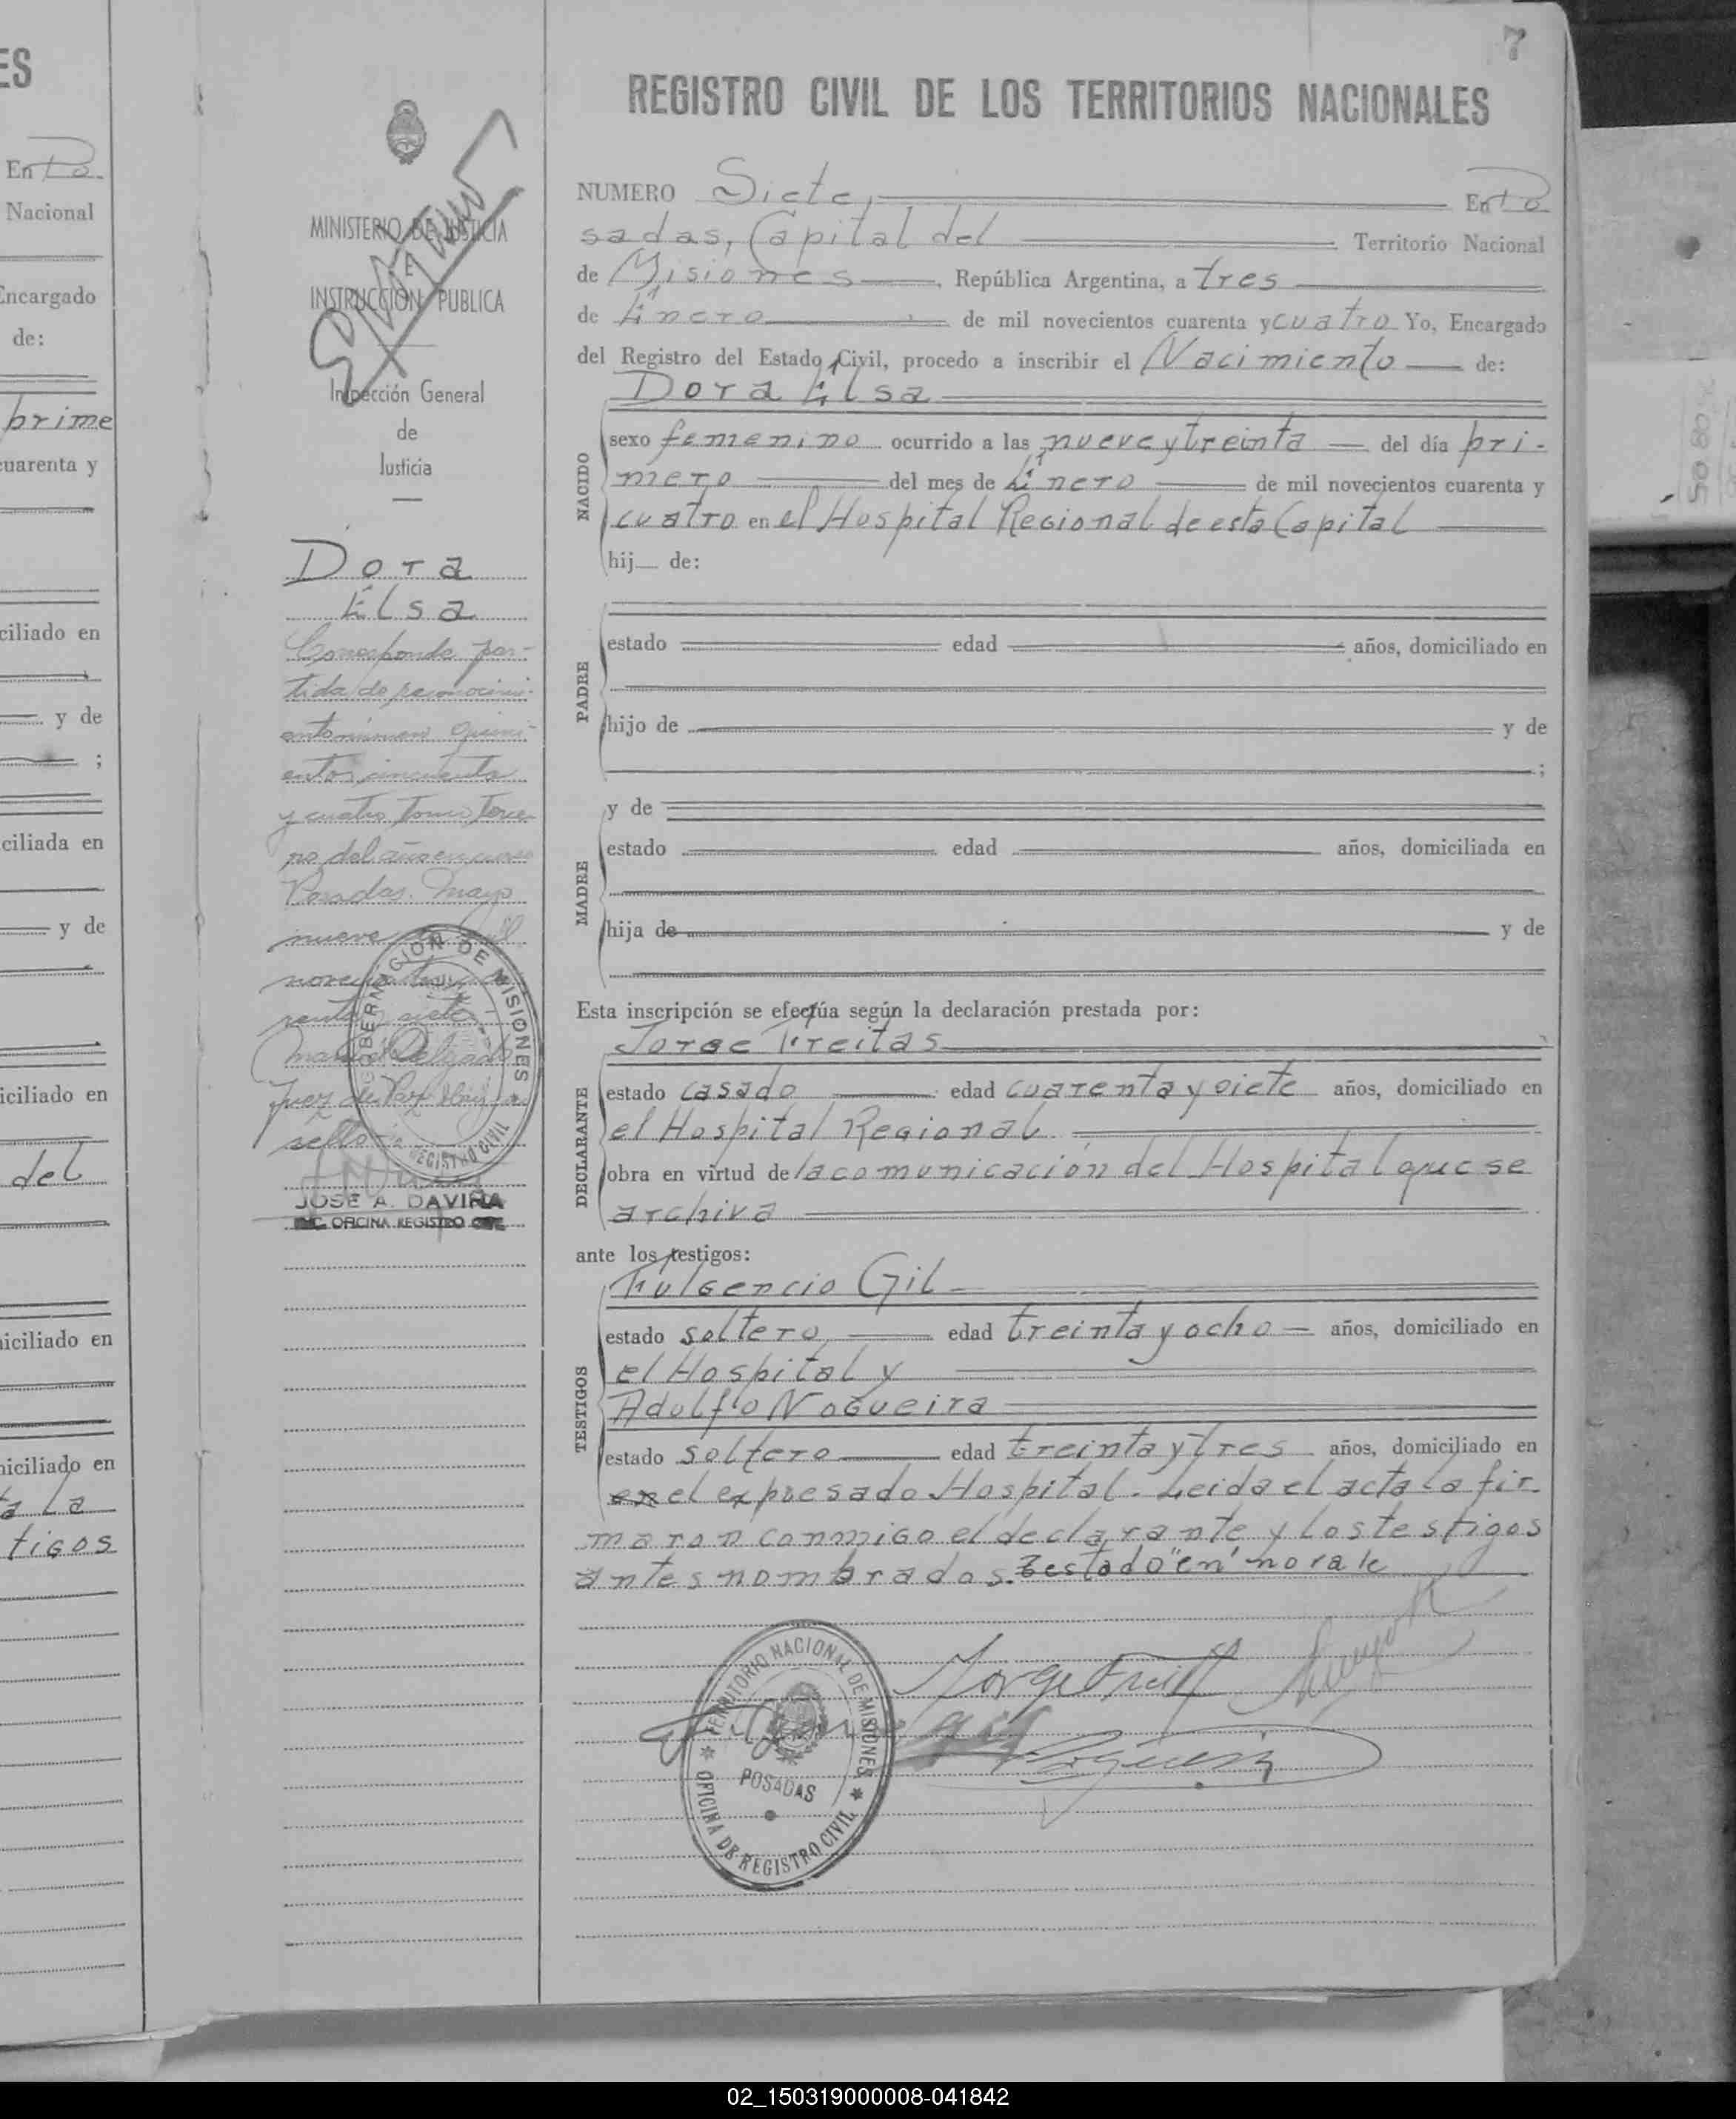 ES
En Po
Nacional
Encargado
de:
prime
cuarenta y
ciliado en
y de
;
ciliada en
y de
iciliado en
del
niciliado en
niciliado en
ta La
tigos
7
REGISTRO CIVIL DE LOS TERRITORIOS NACIONALES
MINISTERIO DE JUSTICIA
E
INSTRUCCIÓN PUBLICA
Inspección General
de
Justicia
Dora
Elsa
Corresponde par-
tida de reconocimi-
ento número quini-
entos cincuenta
y cuatro tomo terce-
ro del año en curso
Posadas. Mayo
nueve de mil
novecientos
renta y siete
Delgado
Juez de Paz Hay un
sello
GOBERNACION DE MISIONES
REGISTRO CIVIL
JOSE A. DAVIÑA
ENC. OFICINA REGISTRO CIVIL
NUMERO Siete, En Po
sadas, Capital del Territorio Nacional
de Misiones, República Argentina, a tres
de Enero de mil novecientos cuarenta y cuatro Yo, Encargado
del Registro del Estado Civil, procedo a inscribir el Nacimiento de:
Dora Elsa
NACIDO
sexo femenino ocurrido a las nueve y treinta del día pri-
mero del mes de Enero de mil novecientos cuarenta y
cuatro en el Hospital Regional de esta Capital
hij de:
PADRE
estado edad años, domiciliado en
hijo de y de
;
y de
MADRE
estado edad años, domiciliada en
hija de y de
Esta inscripción se efectúa según la declaración prestada por:
Jorge Freitas
DECLARANTE
estado casado edad cuarenta y siete años, domiciliado en
el Hospital Regional
obra en virtud de la comunicación del Hospital que se
archiva
ante los testigos:
Fulgencio Gil
TESTIGOS
estado soltero edad treinta y ocho años, domiciliado en
el Hospital y
Adolfo Nogueira
estado soltero edad treinta y tres años, domiciliado en
en el expresado Hospital. Leida el acta la fir-
maron conmigo el declarante y los testigos
antes nombrados. Testado "en" no vale
Jorge Freitas
Nogueira
TERRITORIO NACIONAL DE MISIONES
POSADAS
OFICINA DE REGISTRO CIVIL
50 80 x
02_150319000008-041842